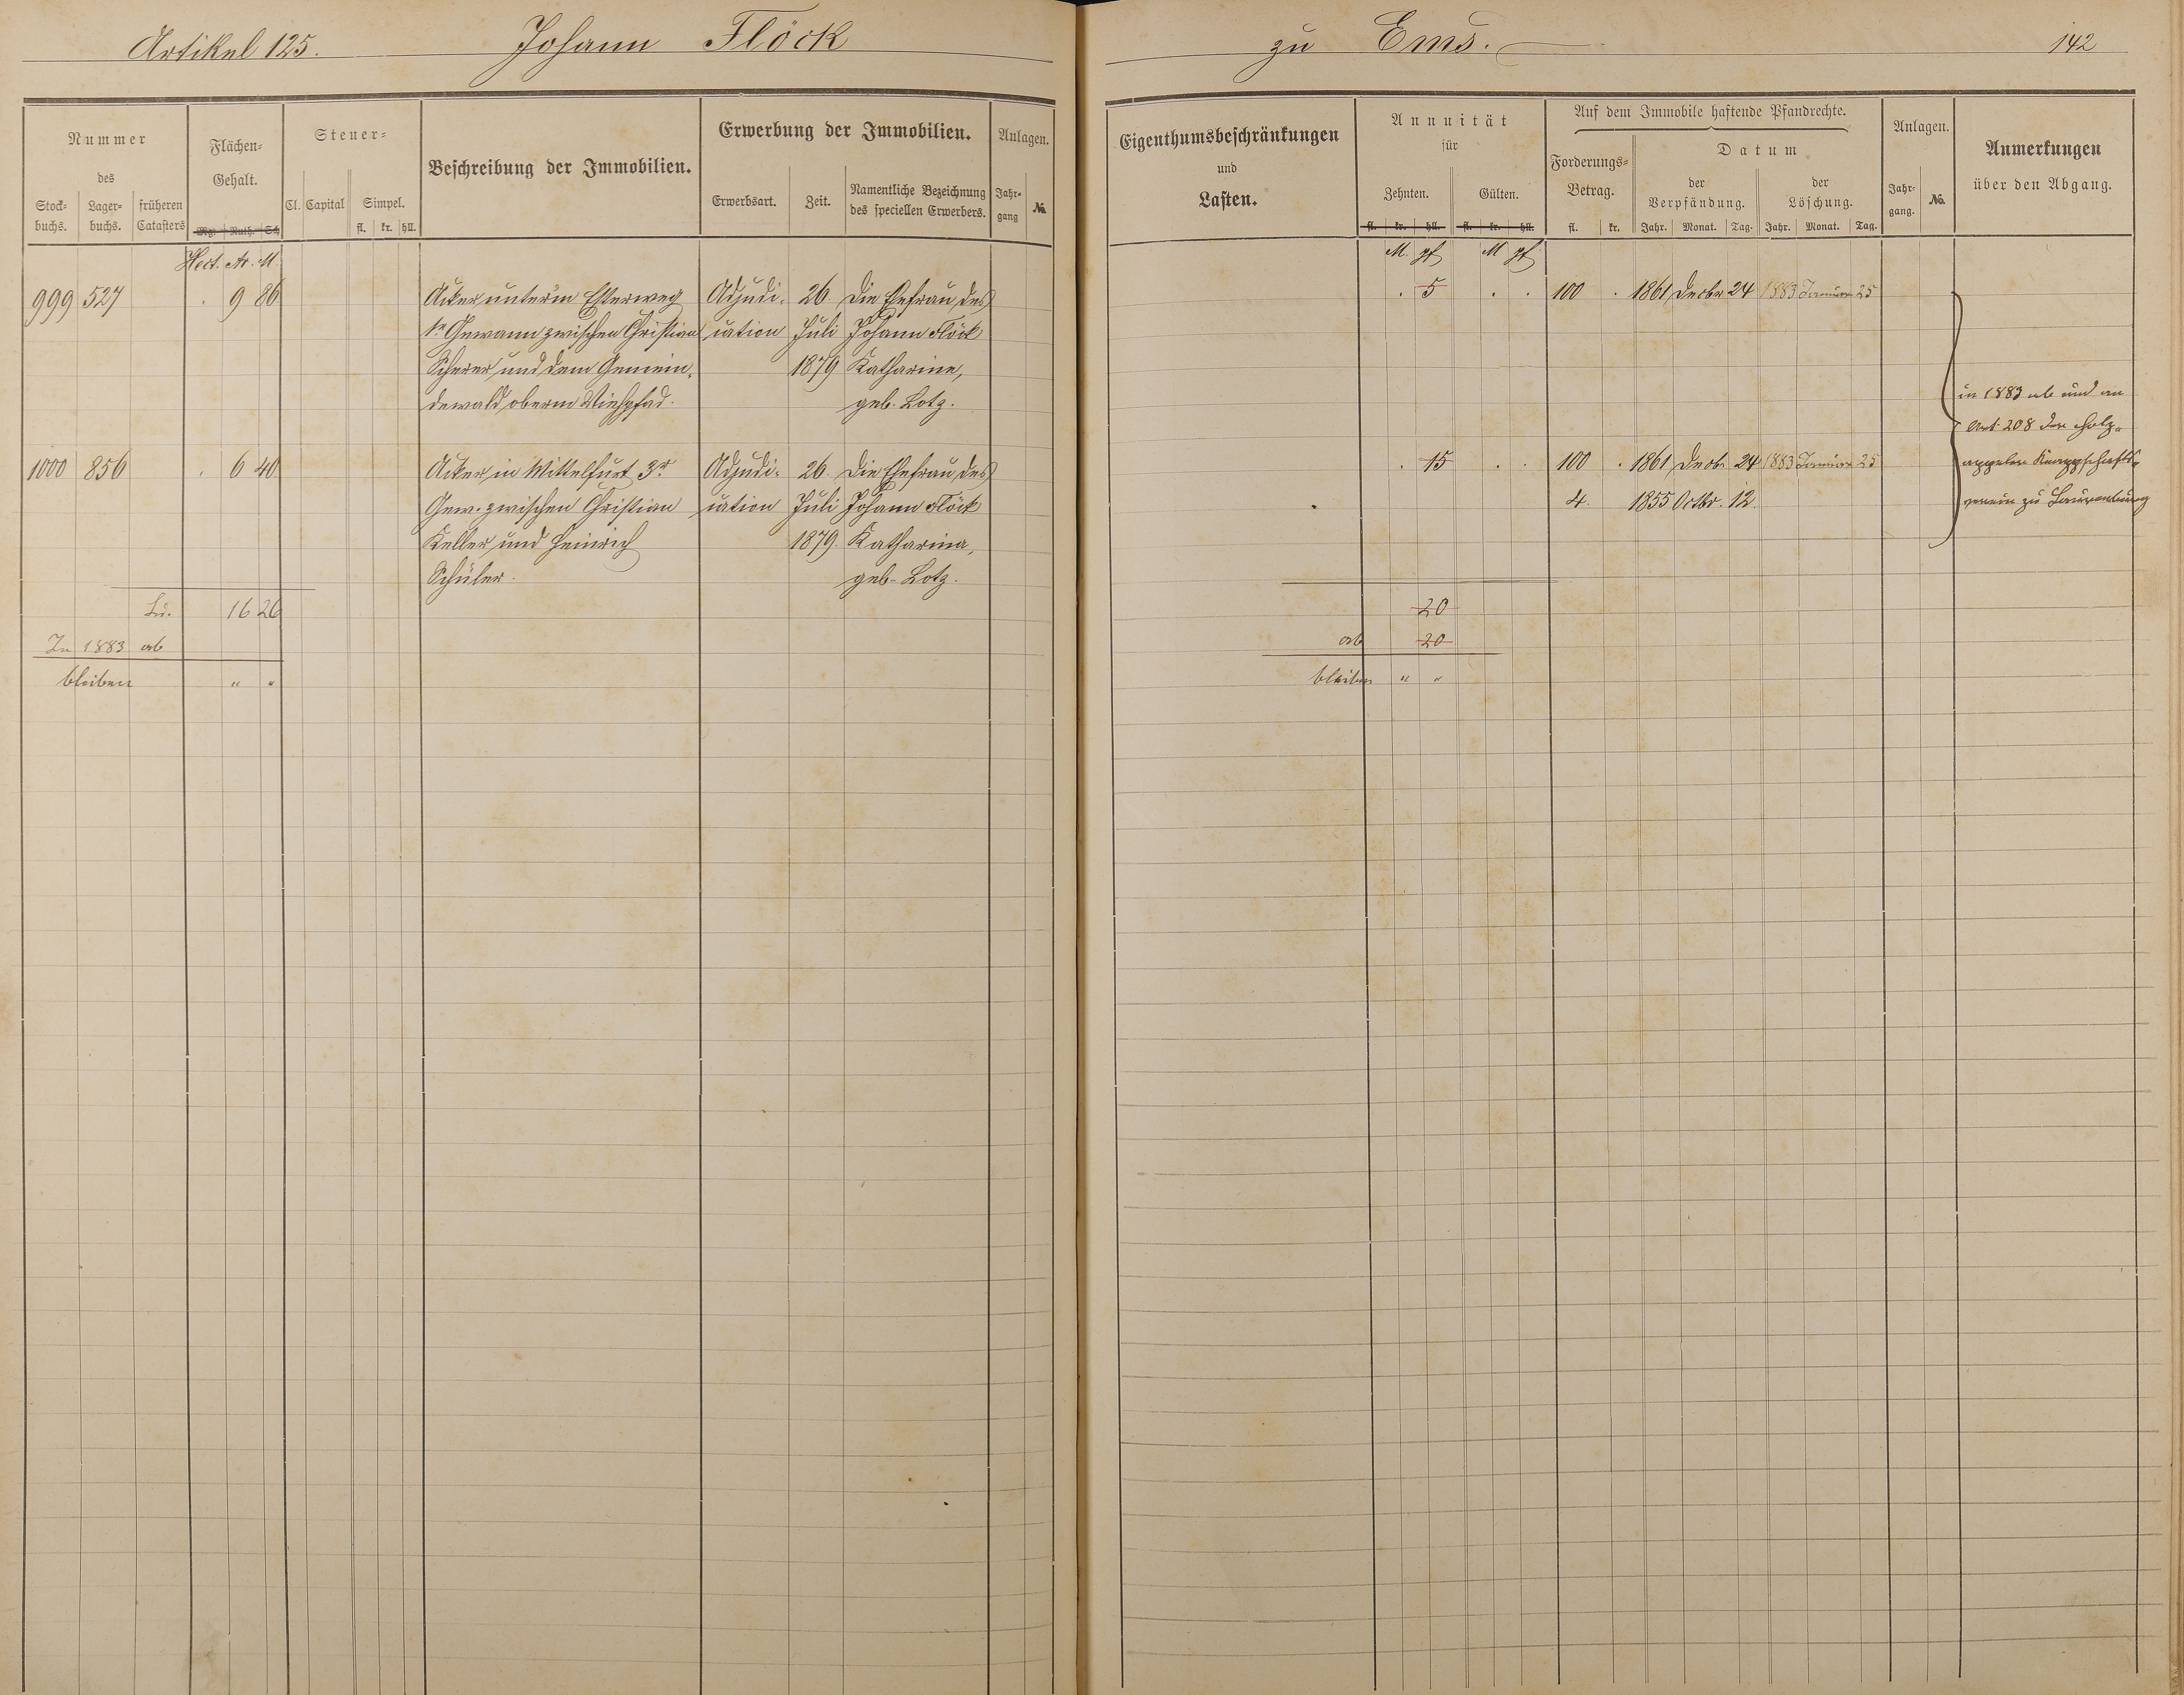 Artikel 125. Johann Flöck zu Ems. 142
Nummer des
Stock-buchs. Lager-buchs. früheren Catasters
Flächen-Gehalt.
Mg. Ruth. Sch
Steuer-
Cl. Capital Simpel.
fl. kr. hll.
Beschreibung der Immobilien.
Erwerbung der Immobilien.
Erwerbsart. Zeit. Namentliche Bezeichnung des speciellen Erwerbers.
Anlagen.
Jahr-gang No.
Eigenthumsbeschränkungen
und
Lasten.
Annuität
für
Zehnten. Gülten.
fl. kr. hll. fl. kr. hll.
Auf dem Immobile haftende Pfandrechte.
Forderungs-Betrag.
fl. kr.
Datum
der Verpfändung. der Löschung.
Jahr. Monat. Tag. Jahr. Monat. Tag.
Anlagen.
Jahr-gang. No.
Anmerkungen
über den Abgang.
Hect. Ar. M. M. pf M pf
999 527 . 9 86 Acker unter'm Esterweg Adjudi- 26. die Ehefrau des . 5 . . 100 . 1861 Decbr 24 1883 Januar 25
1r Gewann zwischen Christian cation Juli Johann Flöck
Scherer und dem Gemein- 1879 Katharine,
dewald oberm Viehpfad. geb. Lotz.
1000 856 . 6 40 Acker in Mittelfurt 3r Adjudi- 26. die Ehefrau des . 15 . . 100 . 1861 Decbr. 24 1883 Januar 25
Gew. zwischen Christian cation Juli Johann Flöck 4. 1855 Octbr. 12.
Keller und Heinrich 1879. Katharina,
Schüler. geb. Lotz.
in 1883 ab und an
Art. 208 der Holz-
appeler Knappschafts-
verein zu Laurenburg
Su. 16 26 20
In 1883 ab ab 20
bleiben " " bleiben " "